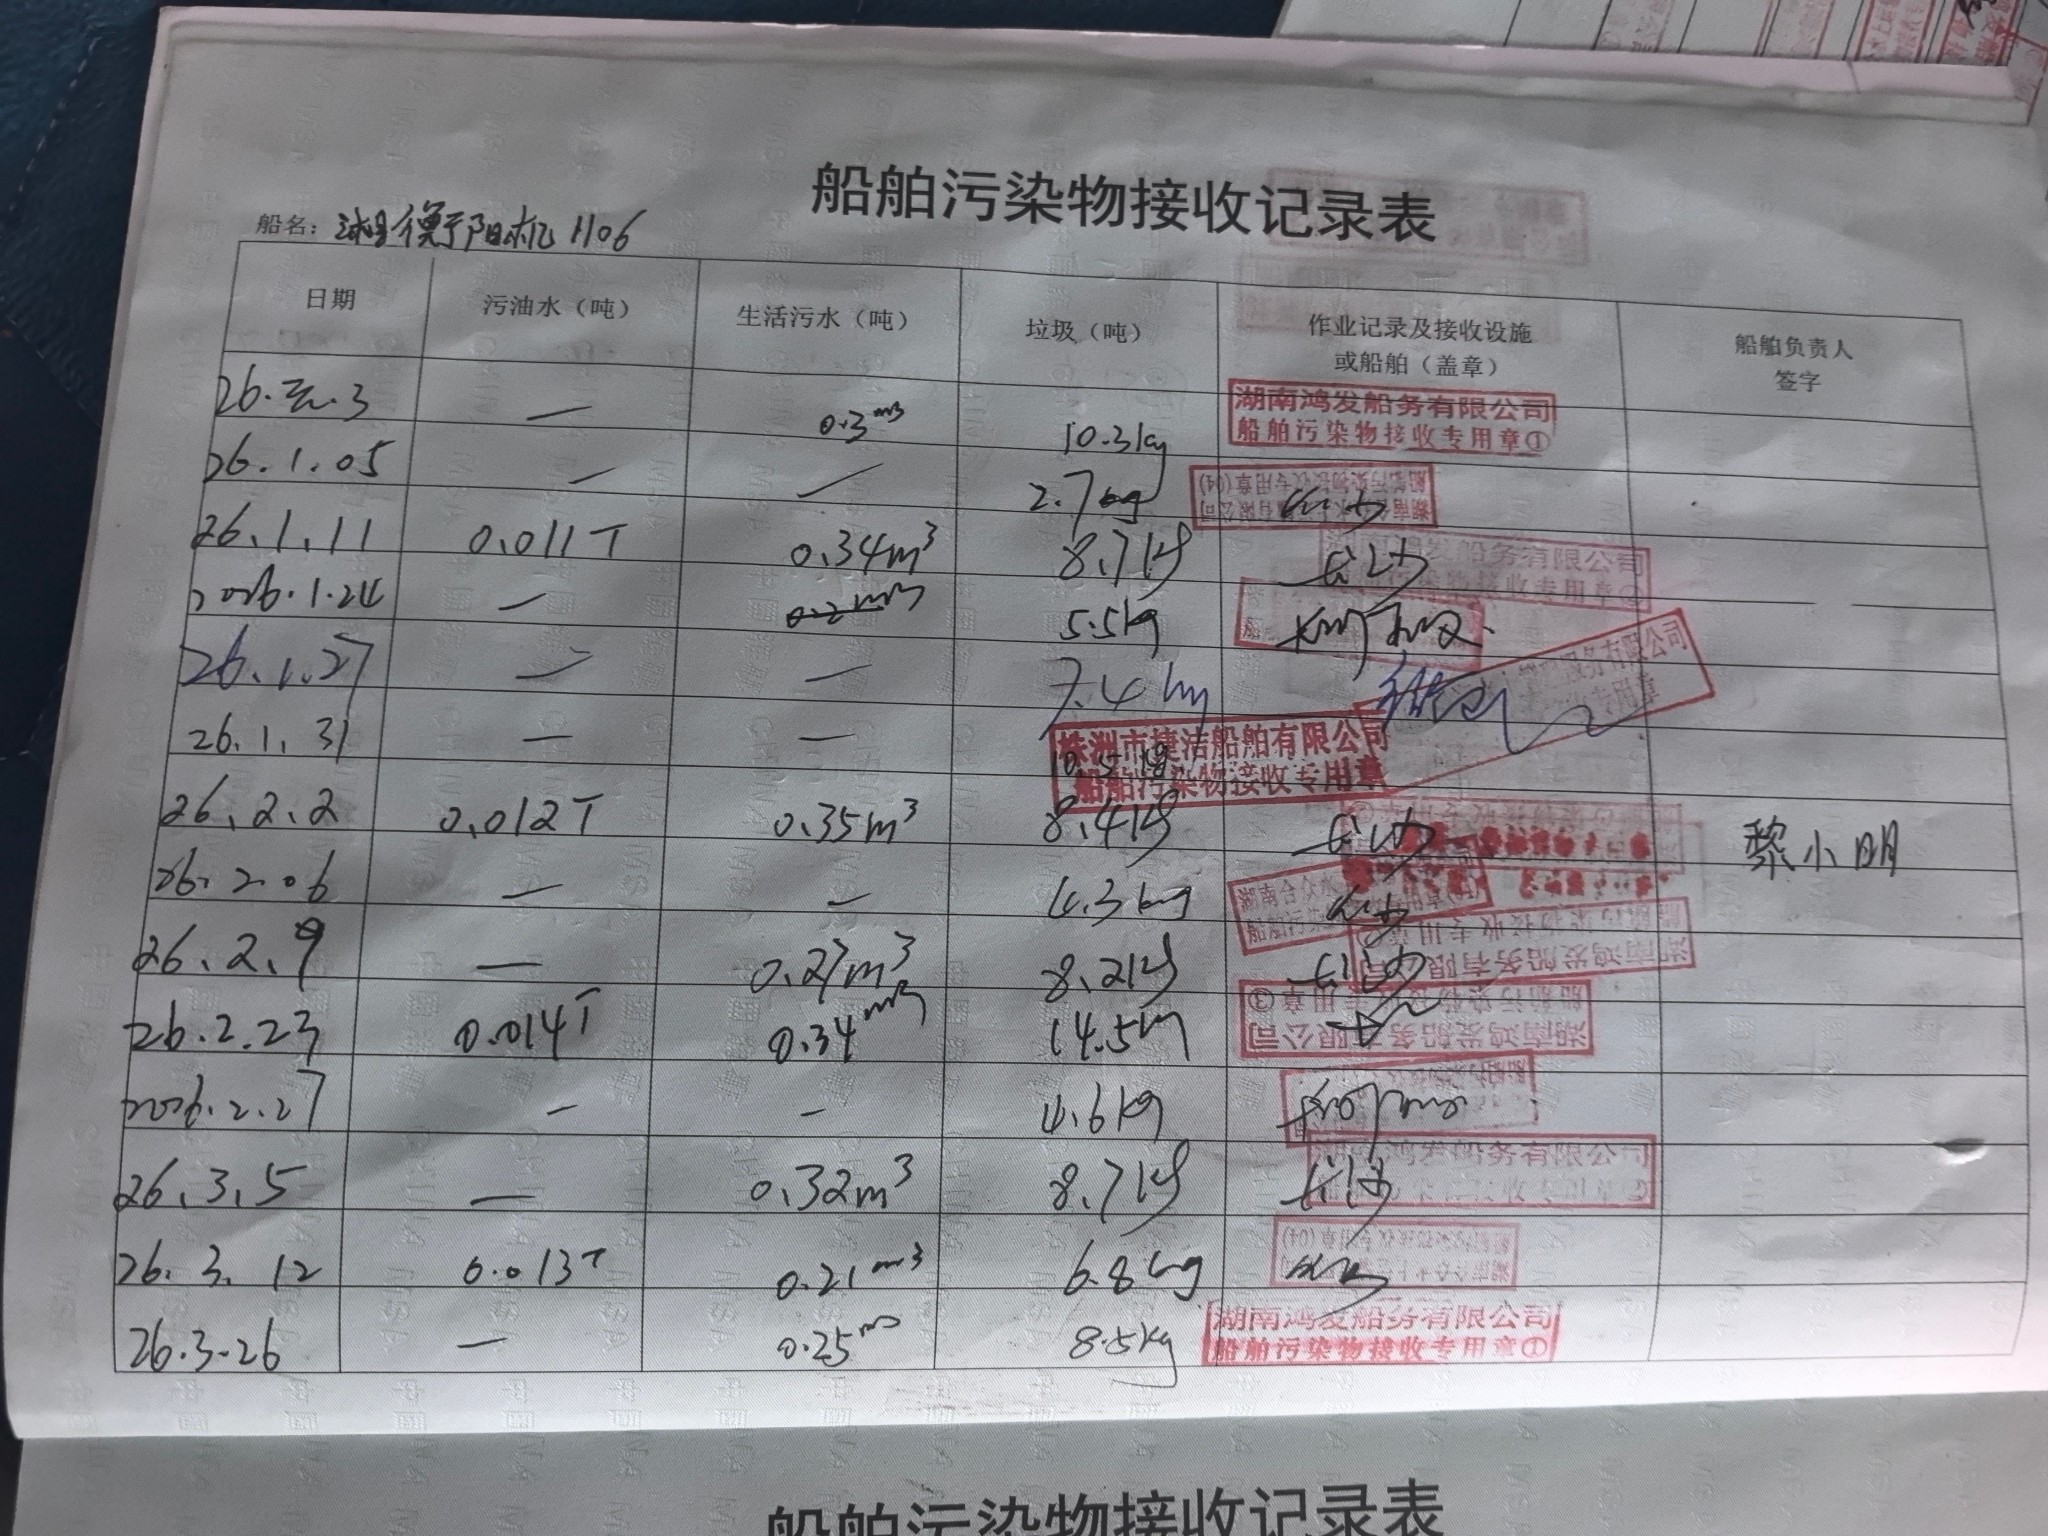 船舶污染物接收记录表
船名：湘衡阳机1106
日期 污油水（吨） 生活污水（吨） 垃圾（吨） 作业记录及接收设施或船舶（盖章） 船舶负责人签字
26. .3 — 0.3m3 10.3kg 湖南鸿发船务有限公司 船舶污染物接收专用章①
26.1.05 — — 2.7kg 船舶污染物接收专用章(04)
26.1.11 0.011T 0.34m³ 8.7kg 长沙 湖南鸿发船务有限公司
2026.1.24 — 0.2m3 5.5kg
26.1.27 — — 7.4kg 服务有限公司 专用章
26.1.31 — — 株洲市捷洁船舶有限公司 船舶污染物接收专用章
26.2.2 0.012T 0.35m³ 8.4kg 长沙 黎小明
26.2.06 — — 4.3kg 湖南合众水
26.2.9 — 0.27m³ 8.2kg 长沙 湖南鸿发船务有限公司 船舶污染物接收专用章
26.2.23 0.014T 0.34m3 14.5kg 湖南鸿发船务有限公司 船舶污染物接收专用章③
2026.2.27 — — 4.6kg
26.3.5 — 0.32m³ 8.7kg 长沙 湖南鸿发船务有限公司
26.3.12 0.013T 0.21m3 6.8kg 船舶污染物接收专用章(04)
26.3.26 — 0.25m3 8.5kg 湖南鸿发船务有限公司 船舶污染物接收专用章①
船舶污染物接收记录表